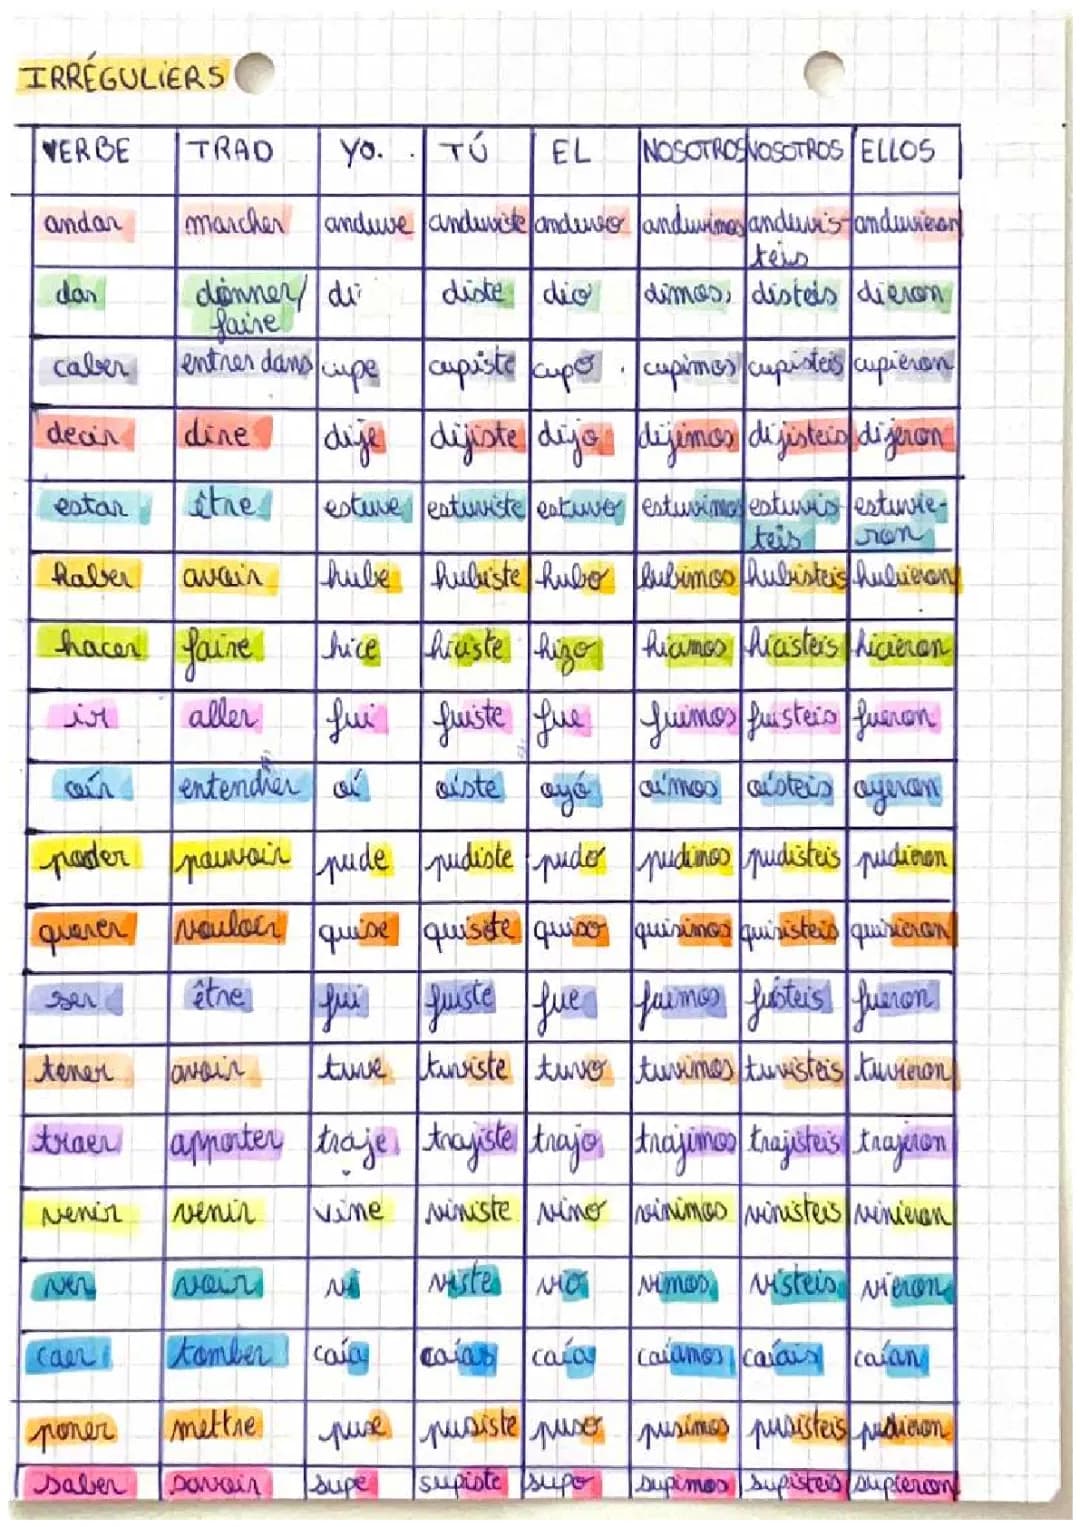 IRRÉGULIERS
VERBE TRAD YO. TÚ EL NOSOTROS VOSOTROS ELLOS
andar marcher anduve anduviste anduvo anduvimos anduvis-teis anduvieron
dar donner/faire di diste dio dimos, disteis dieron
caber entrer dans cupe cupiste cupo. cupimos cupisteis cupieron
decir dire dije dijiste dijo dijimos dijisteis dijeron
estar être estuve estuviste estuvo estuvimos estuvis-teis estuvie-ron
haber avoir hube hubiste hubo hubimos hubisteis hubieron
hacer faire hice hiciste hizo hicimos hicisteis hicieron
ir aller fui fuiste fue fuimos fuisteis fueron
oír oí oíste oyó oímos oísteis oyeron
poder pouvoir pude pudiste pudo pudimos pudisteis pudieron
querer vouloir quise quiso quisimos quisisteis quisieron
ser être fui fuiste fue fuimos fuisteis fueron
tener avoir tuve tuviste tuvo tuvimos tuvisteis tuvieron
traer apporter traje trajiste trajo trajimos trajisteis trajeron
venir venir vine viniste vino vinimos vinisteis vinieron
ver voir vi viste vio vimos visteis vieron
caer tomber caía caías caía caíamos caíais caían
poner mettre puse pusiste puso pusimos pusisteis
saber savoir supe supiste supo supimos supisteis supieron